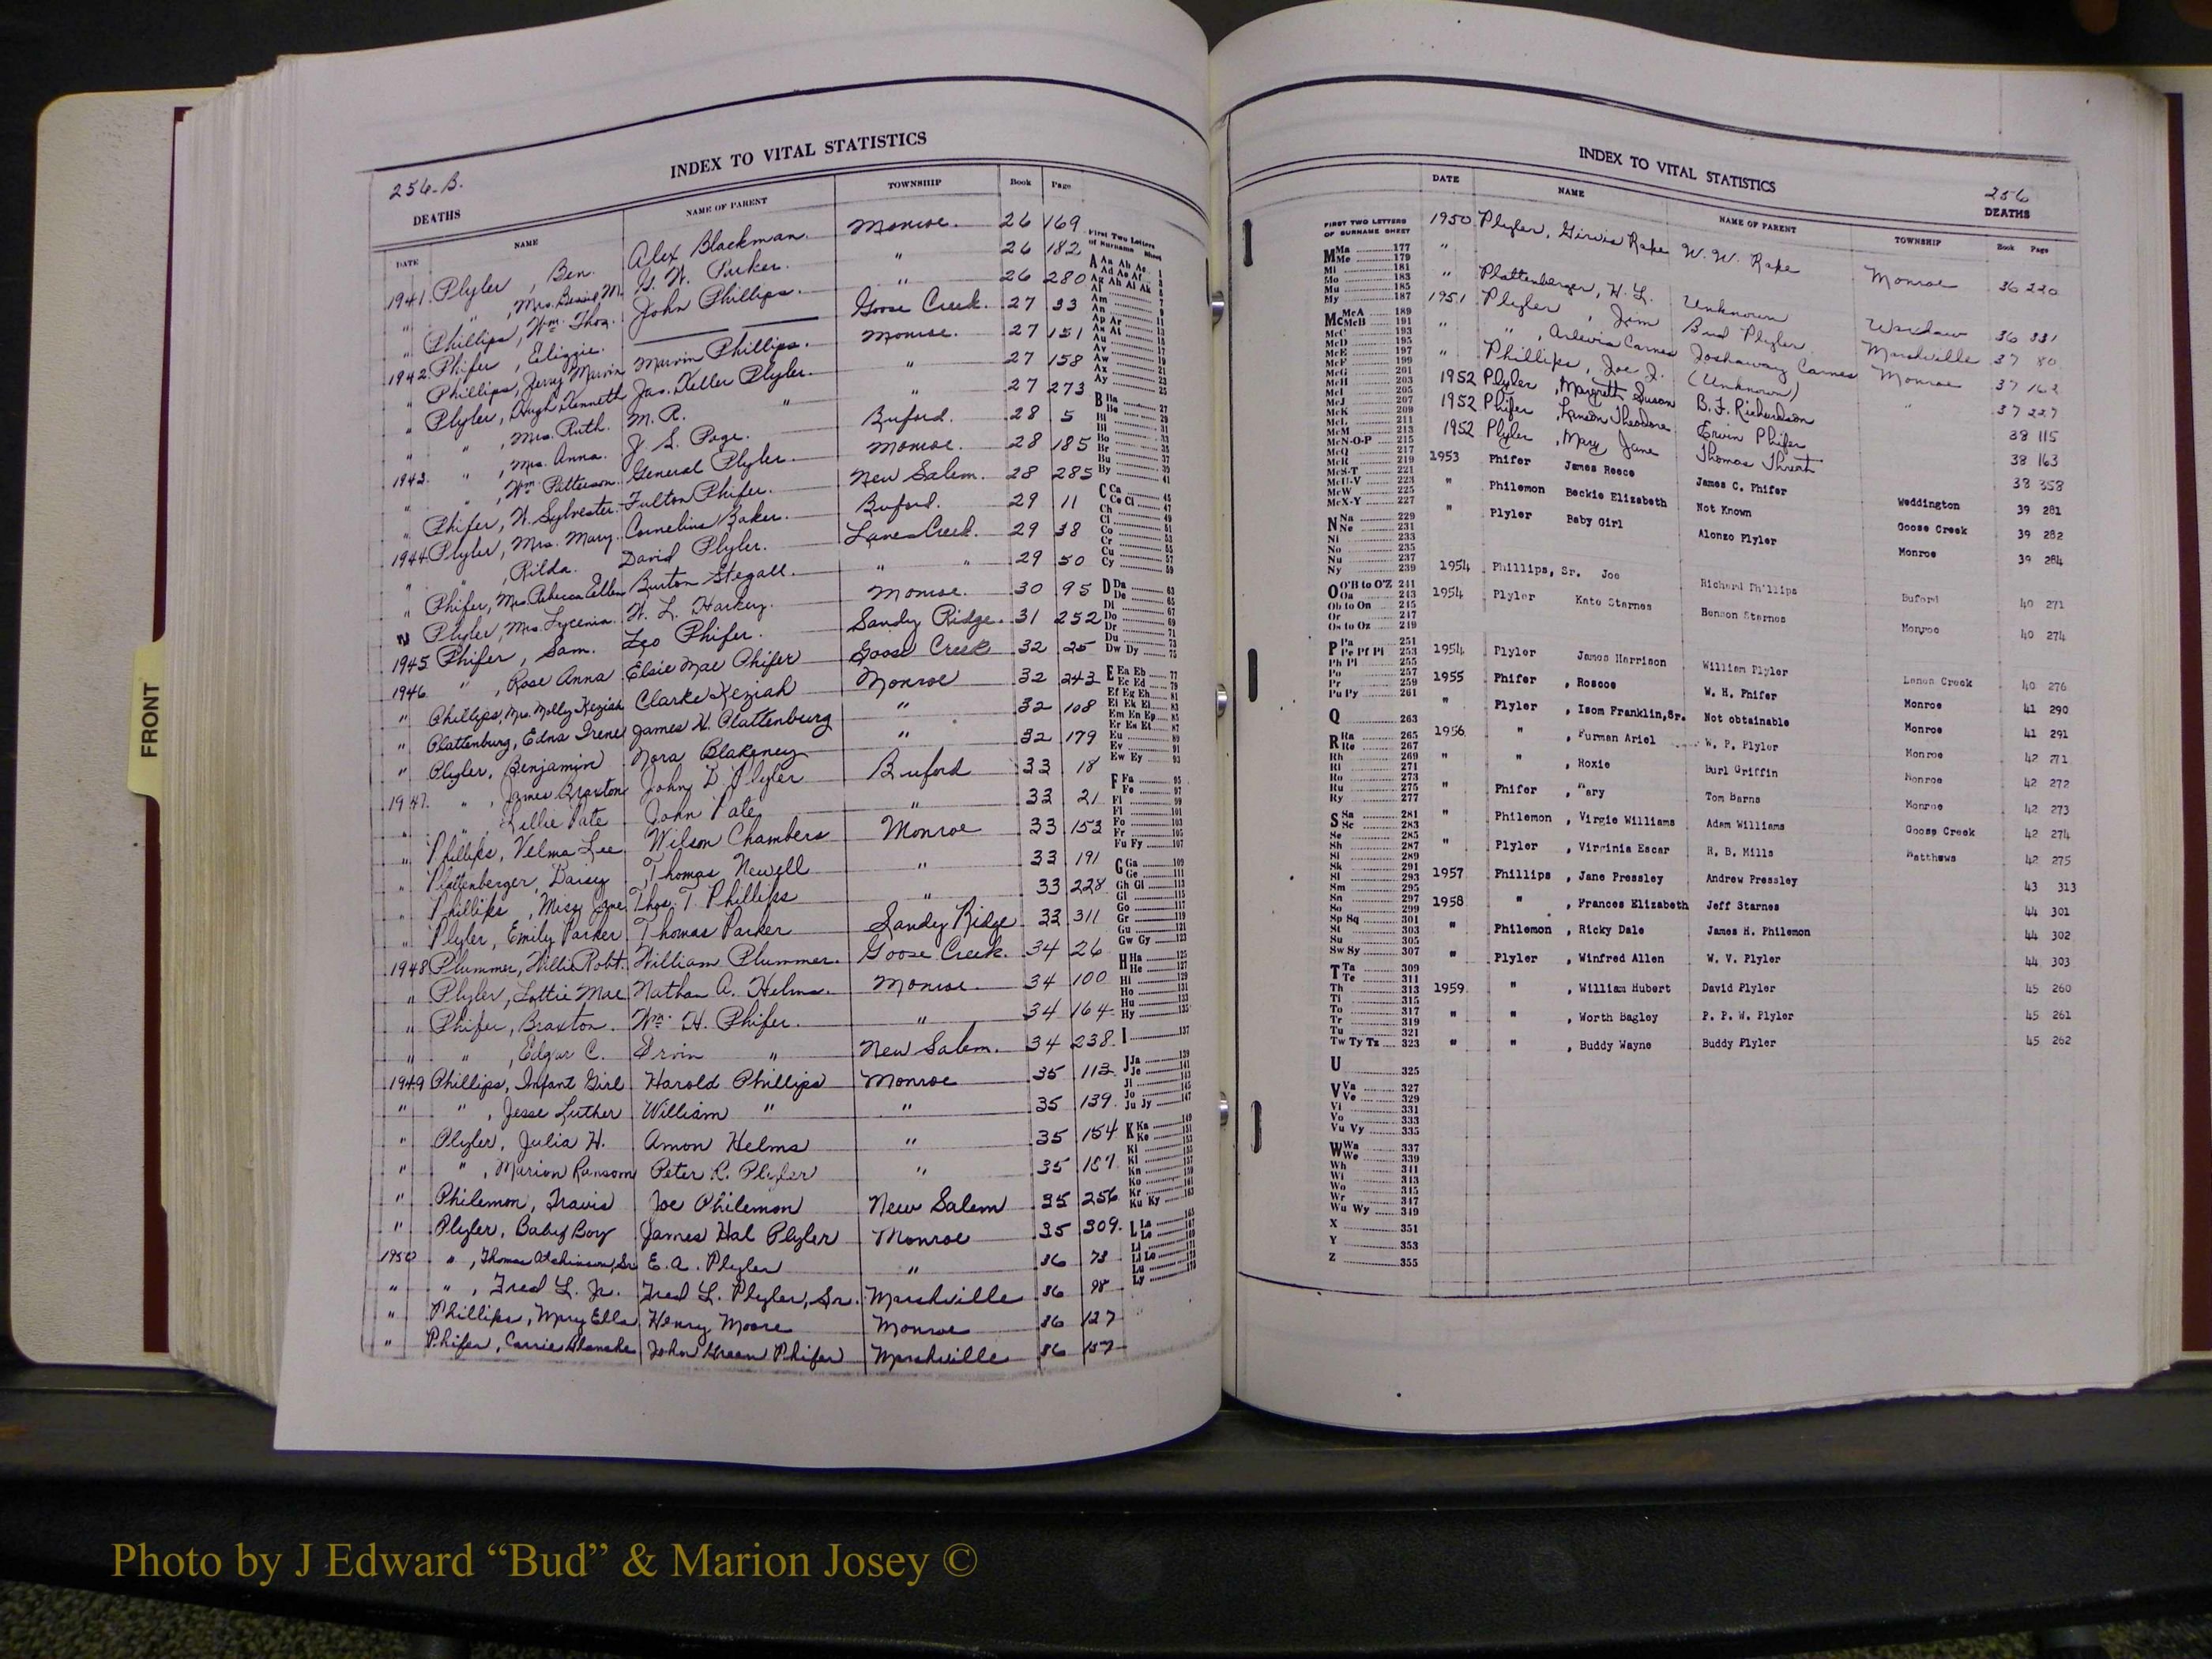 INDEX TO VITAL STATISTICS
256-B.
DEATHS
DATE NAME NAME OF PARENT TOWNSHIP Book Page
1941 Plyler, Ben. Alex Blackman. Monroe. 26 169
" " , Mrs. Bessie M. G. W. Parker. " 26 182
" Phillips, Wm. Thos. John Phillips. " 26 280
1942 Phifer, Elizzie. Goose Creek. 27 33
" Phillips, Jerry Marvin Marvin Phillips. Monroe. 27 151
" Plyler, Hugh Kenneth Jas. Keller Plyler. " 27 158
" " , Mrs. Ruth. M. R. " " 27 273
1943. " , Mrs. Anna. J. S. Page. Buford. 28 5
" " , Wm. Patterson. General Plyler. Monroe. 28 185
" Phifer, W. Sylvester. Fulton Phifer. New Salem. 28 285
1944 Plyler, Mrs. Mary. Cornelius Baker. Buford. 29 11
" " , Rilda. David Plyler. Lanes Creek. 29 38
" Phifer, Mrs. Rebecca Ellen Burton Stegall. " " 29 50
" Plyler, Mrs. Lycenia. W. L. Harkey. Monroe. 30 95
1945 Phifer, Sam. Leo Phifer. Sandy Ridge. 31 252
1946 " , Rose Anna Elsie Mae Phifer Goose Creek 32 25
" Phillips, Mrs. Molly Keziah Clarke Keziah Monroe 32 243
" Plattenburg, Edna Irene James H. Plattenburg " 32 108
" Plyler, Benjamin Nora Blakeney " 32 179
1947. " , James Braxton John D Plyler Buford 33 18
" " Lillie Pate John Pate " 33 21
" Phillips, Velma Lee Wilson Chambers Monroe 33 153
" Plattenberger, Daisy Thomas Newell " 33 191
" Phillips, Miss Jane Thos. T. Phillips " 33 228
" Plyler, Emily Parker Thomas Parker Sandy Ridge 33 311
1948 Plummer, Willie Robt. William Plummer. Goose Creek. 34 26
" Plyler, Lottie Mae Nathan A. Helms. Monroe. 34 100
" Phifer, Braxton. Wm. H. Phifer. " 34 164
" " , Edgar C. Ervin " New Salem. 34 238
1949 Phillips, Infant Girl Harold Phillips Monroe 35 113
" " , Jesse Luther William " " 35 139
" Plyler, Julia H. Amon Helms " 35 154
" " , Marion Ransom Peter R. Plyler " 35 187
" Philemon, Travis Joe Philemon New Salem 35 256
" Plyler, Baby Boy James Hal Plyler Monroe 35 309.
1950 " , Thomas Atchinson, Sr E. A. Plyler " 36 73
" " , Fred L. Jr. Fred L. Plyler, Sr. Marshville 36 98
" Phillips, Mary Ella Henry Moore Monroe 36 127
" Phifer, Carrie Blanche John Green Phifer Marshville 36 157
First Two Letters of Surname Sheet
INDEX TO VITAL STATISTICS
256
DEATHS
DATE NAME NAME OF PARENT TOWNSHIP Book Page
1950 Plyler, Girvis Rape W. W. Rape Monroe 36 220
" Plattenberger, H. L. Unknown Waxhaw 36 331
1951 Plyler, Jim Bud Plyler Marshville 37 80
" " , Arlevia Carnes Joshaway Carnes Monroe 37 162
" Phillips, Joe J. (Unknown) " 37 227
1952 Plyler, Margrett Susan B. F. Richardson 38 115
1952 Phifer, Lenson Theodore Ervin Phifer 38 163
1952 Plyler, Mary Jane Thomas Threatt 38 358
1953 Phifer James Reece James C. Phifer Weddington 39 281
" Philemon Beckie Elizabeth Not Known Goose Creek 39 282
" Plyler Baby Girl Alonzo Plyler Monroe 39 284
1954 Phillips, Sr. Joe Richard Phillips Buford 40 271
1954 Plyler Kate Starnes Benson Starnes Monroe 40 274
1954 Plyler James Harrison William Plyler Lanes Creek 40 276
1955 Phifer , Roscoe W. H. Phifer Monroe 41 290
" Plyler , Isom Franklin,Sr. Not obtainable Monroe 41 291
1956 " , Furman Ariel W. P. Plyler Monroe 42 271
" " , Roxie Burl Griffin Monroe 42 272
" Phifer , Mary Tom Barns Monroe 42 273
" Philemon , Virgie Williams Adam Williams Goose Creek 42 274
" Plyler , Virginia Escar R. B. Mills Matthews 42 275
1957 Phillips , Jane Pressley Andrew Pressley 43 313
1958 " , Frances Elizabeth Jeff Starnes 44 301
" Philemon , Ricky Dale James H. Philemon 44 302
" Plyler , Winfred Allen W. V. Plyler 44 303
1959 " , William Hubert David Plyler 45 260
" " , Worth Bagley P. P. W. Plyler 45 261
" " , Buddy Wayne Buddy Plyler 45 262
FIRST TWO LETTERS OF SURNAME SHEET
Ma 177
Me 179
Mi 181
Mo 183
Mu 185
My 187
McA 189
McB 191
McC 193
McD 195
McE 197
McF 199
McG 201
McH 203
McI 205
McJ 207
McK 209
McL 211
McM 213
McN-O-P 215
McQ 217
McR 219
McS-T 221
McU-V 223
McW 225
McX-Y 227
Na 229
Ne 231
Ni 233
No 235
Nu 237
Ny 239
O'B to O'Z 241
Oa 243
Ob to On 245
Or 217
Os to Oz 219
Pa 251
Pe Pf Pi 253
Ph Pl 255
Po 257
Pr 259
Pu Py 261
Q 263
Ra 265
Re 267
Rh 269
Ri 271
Ro 273
Ru 275
Ry 277
Sa 281
Sc 283
Se 285
Sh 287
Si 289
Sk 291
Sl 293
Sm 295
Sn 297
So 299
Sp Sq 301
St 303
Su 305
Sw Sy 307
Ta 309
Te 311
Th 313
Ti 315
To 317
Tr 319
Tu 321
Tw Ty Tz 323
U 325
Va 327
Ve 329
Vi 331
Vo 333
Vu Vy 335
Wa 337
We 339
Wh 341
Wi 343
Wo 345
Wr 347
Wu Wy 349
X 351
Y 353
Z 355
FRONT
Photo by J Edward “Bud” & Marion Josey ©